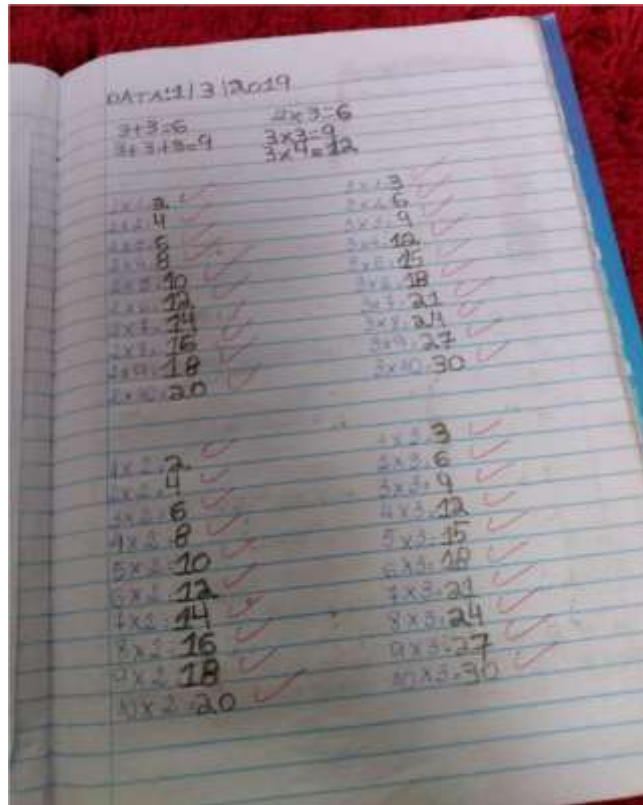 DATA:1/3/2019
3+3=6
3+3+3=9
2x3=6
3x3=9
3x4=12
2x1=2
2x2=4
2x3=6
2x4=8
2x5=10
2x6=12
2x7=14
2x8=16
2x9=18
2x10=20
3x1=3
3x2=6
3x3=9
3x4=12
3x5=15
3x6=18
3x7=21
3x8=24
3x9=27
3x10=30
1x2=2
2x2=4
3x2=6
4x2=8
5x2=10
6x2=12
7x2=14
8x2=16
9x2=18
10x2=20
3
2x3=6
3x3=9
4x3=12
5x3=15
6x3=18
7x3=21
8x3=24
9x3=27
10x3=30